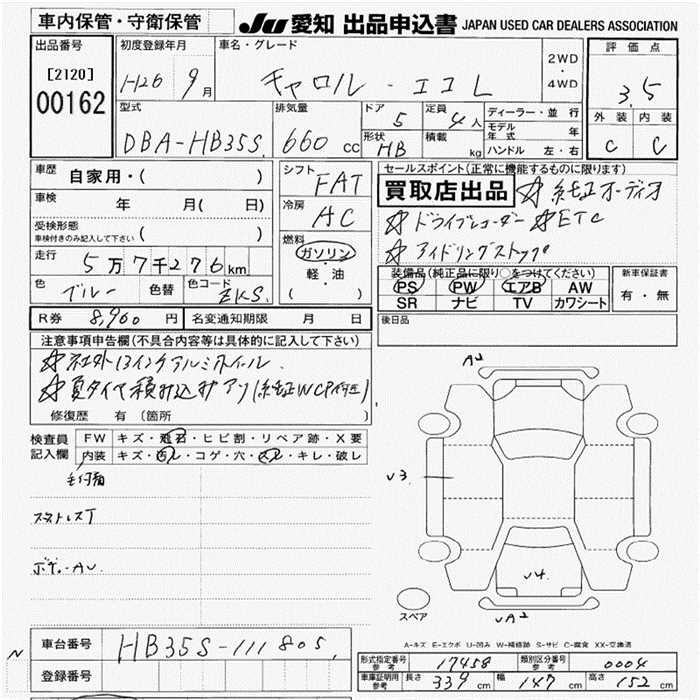 車内保管・守衛保管
JU 愛知 出品申込書 JAPAN USED CAR DEALERS ASSOCIATION
出品番号
[2120]
00162
初度登録年月
H26 9月
車名・グレード
キャロル - エコL
2WD
・
4WD
評価点
3.5
外装 内装
C C
型式
DBA-HB35S
排気量
660 cc
ドア
5
定員
4人
形状
HB
積載
kg
ディーラー・並行
モデル年式 年
ハンドル 左・右
車歴
自家用・( )
車検
年 月( 日)
受検形態
車検付きのみ記入して下さい ( )
走行
5万7千276km
色
ブルー
色替
色コード
ZKS
シフト
FAT
冷房
AC
燃料
ガソリン
・
軽・油
( )
セールスポイント(正常に機能するものに限ります)
買取店出品 ☆純正オーディオ
☆ドライブレコーダー ☆ETC
☆アイドリングストップ
装備品(純正品に限り○をつけてください)
PS PW エアB AW
SR ナビ TV カワシート
新車保証書
有・無
R券 8,960円
名変通知期限 月 日
後日品
注意事項申告欄(不具合内容等は具体的に記入して下さい)
☆社外13インチアルミホイール
☆夏タイヤ積み込みアリ(純正WCP付き)
修復歴 有(箇所 )
検査員
記入欄
FW キズ・飛石・ヒビ割・リペア跡・X要
内装 キズ・汚レ・コゲ・穴・スレ・キレ・破レ
毛付着
スタットレスT
ボデーAU
AU
U3
U4
UA2
スペア
A-キズ E-エクボ U-凹み W-補修跡 S-サビ C-腐食 XX-交換済
N
車台番号 HB35S-111805
登録番号
形式指定番号 参考 17458
類別区分番号 参考 0004
車庫証明用 参考 長さ 339cm 幅 147cm 高さ 152cm